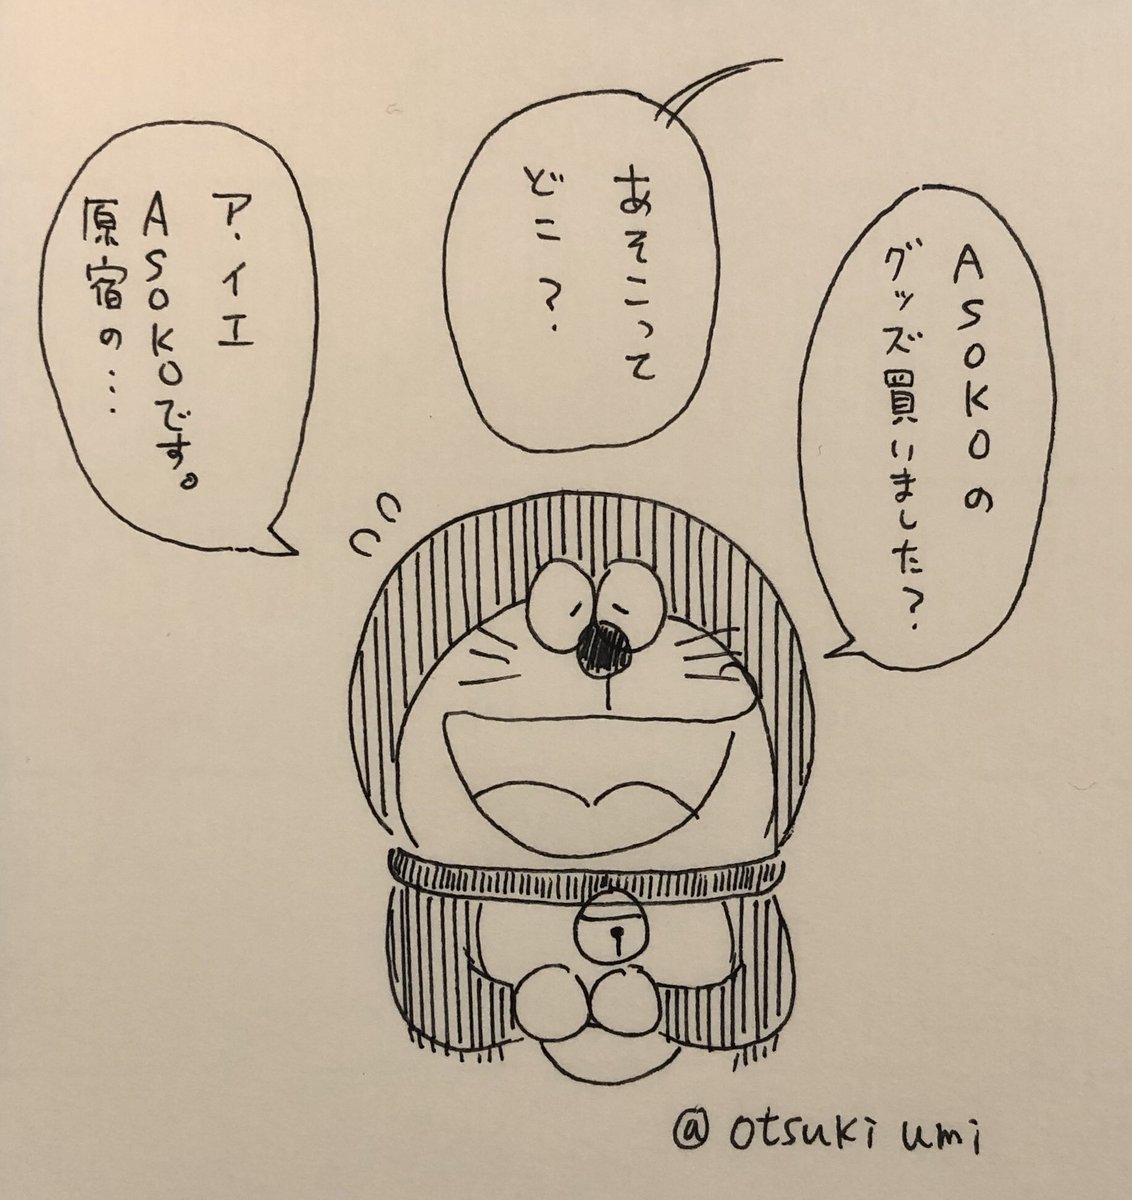 ASOKOの
グッズ買いました?
あそこって
どこ?
ア、イエ
ASOKOです。
原宿の…
@otsuki umi